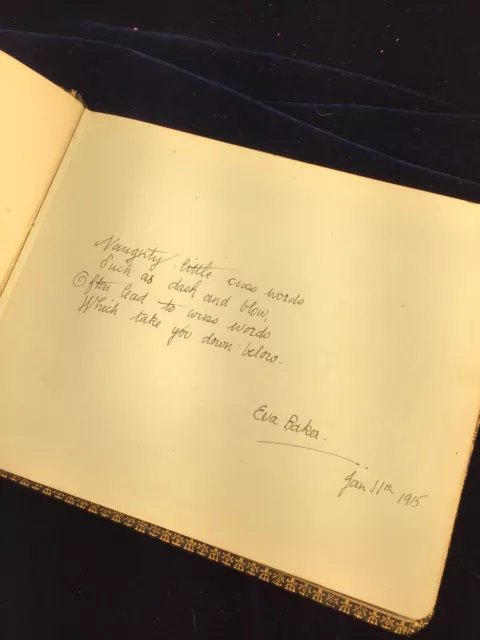 Naughty little cuss words
Such as dash and blow,
Often lead to wuss words
Which take you down below.
Eva Baker.
Jan 11th 1915